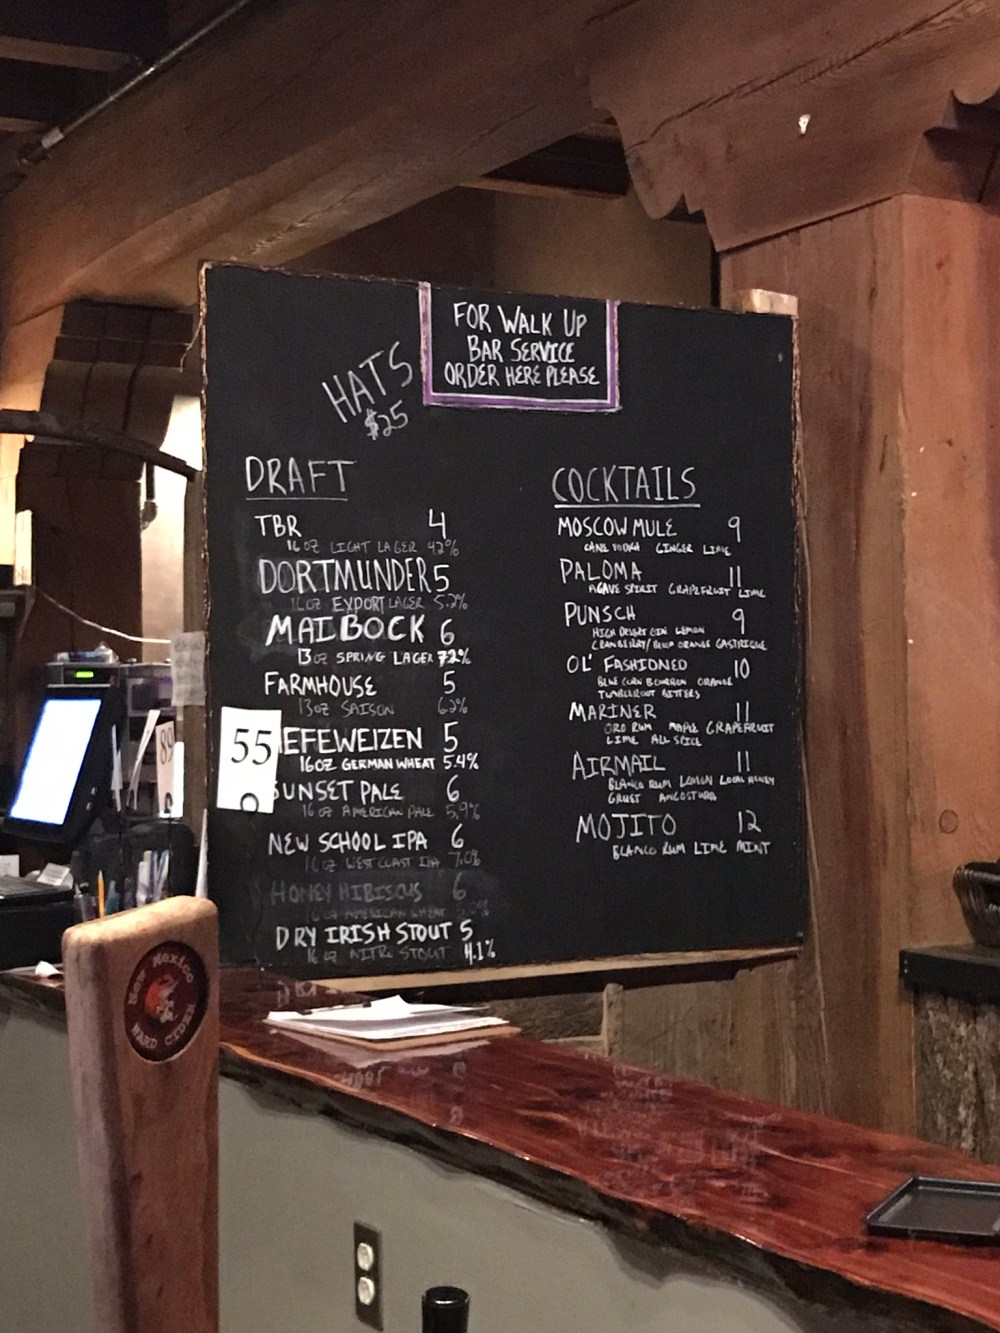 FOR WALK UP
BAR SERVICE
ORDER HERE PLEASE
HATS
$25
DRAFT
TBR 4
16 OZ LIGHT LAGER 4.2%
DORTMUNDER 5
16 OZ EXPORT LAGER 5.2%
MAIBOCK 6
13 OZ SPRING LAGER 7.2%
FARMHOUSE 5
13 OZ SAISON 6.2%
EFEWEIZEN 5
16 OZ GERMAN WHEAT 5.4%
SUNSET PALE 6
16 OZ AMERICAN PALE 5.9%
NEW SCHOOL IPA 6
16 OZ WEST COAST IPA 7.0%
HONEY HIBISCUS 6
16 OZ AMERICAN WHEAT
DRY IRISH STOUT 5
16 OZ NITRO STOUT 4.1%
COCKTAILS
MOSCOW MULE 9
CANE VODKA GINGER LIME
PALOMA 11
AGAVE SPIRIT GRAPEFRUIT LIME
PUNSCH 9
HIGH DESERT GIN LEMON
CRANBERRY/BLOOD ORANGE GASTRIQUE
OL' FASHIONED 10
BLUE CORN BOURBON ORANGE
TUMBLEROOT BITTERS
MARINER 11
ORO RUM MAPLE GRAPEFRUIT
LIME ALL SPICE
AIRMAIL 11
BLANCO RUM LEMON LOCAL HONEY
GRUET ANGOSTURA
MOJITO 12
BLANCO RUM LIME MINT
55
89
New Mexico
HARD CIDER